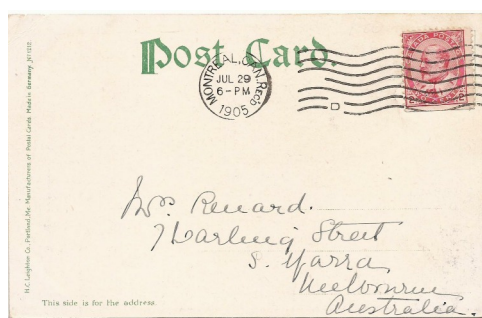 Post Card.
MONTREAL, CAN. REC'D
JUL 29
6-PM
1905
D
CANADA POSTAGE
2 2
H.C. Leighton Co., Portland, Me. Manufacturers of Postal Cards. Made in Germany.
Mrs Renard.
7 Darling Street
S. Yarra
Melbourne
Australia.
This side is for the address.